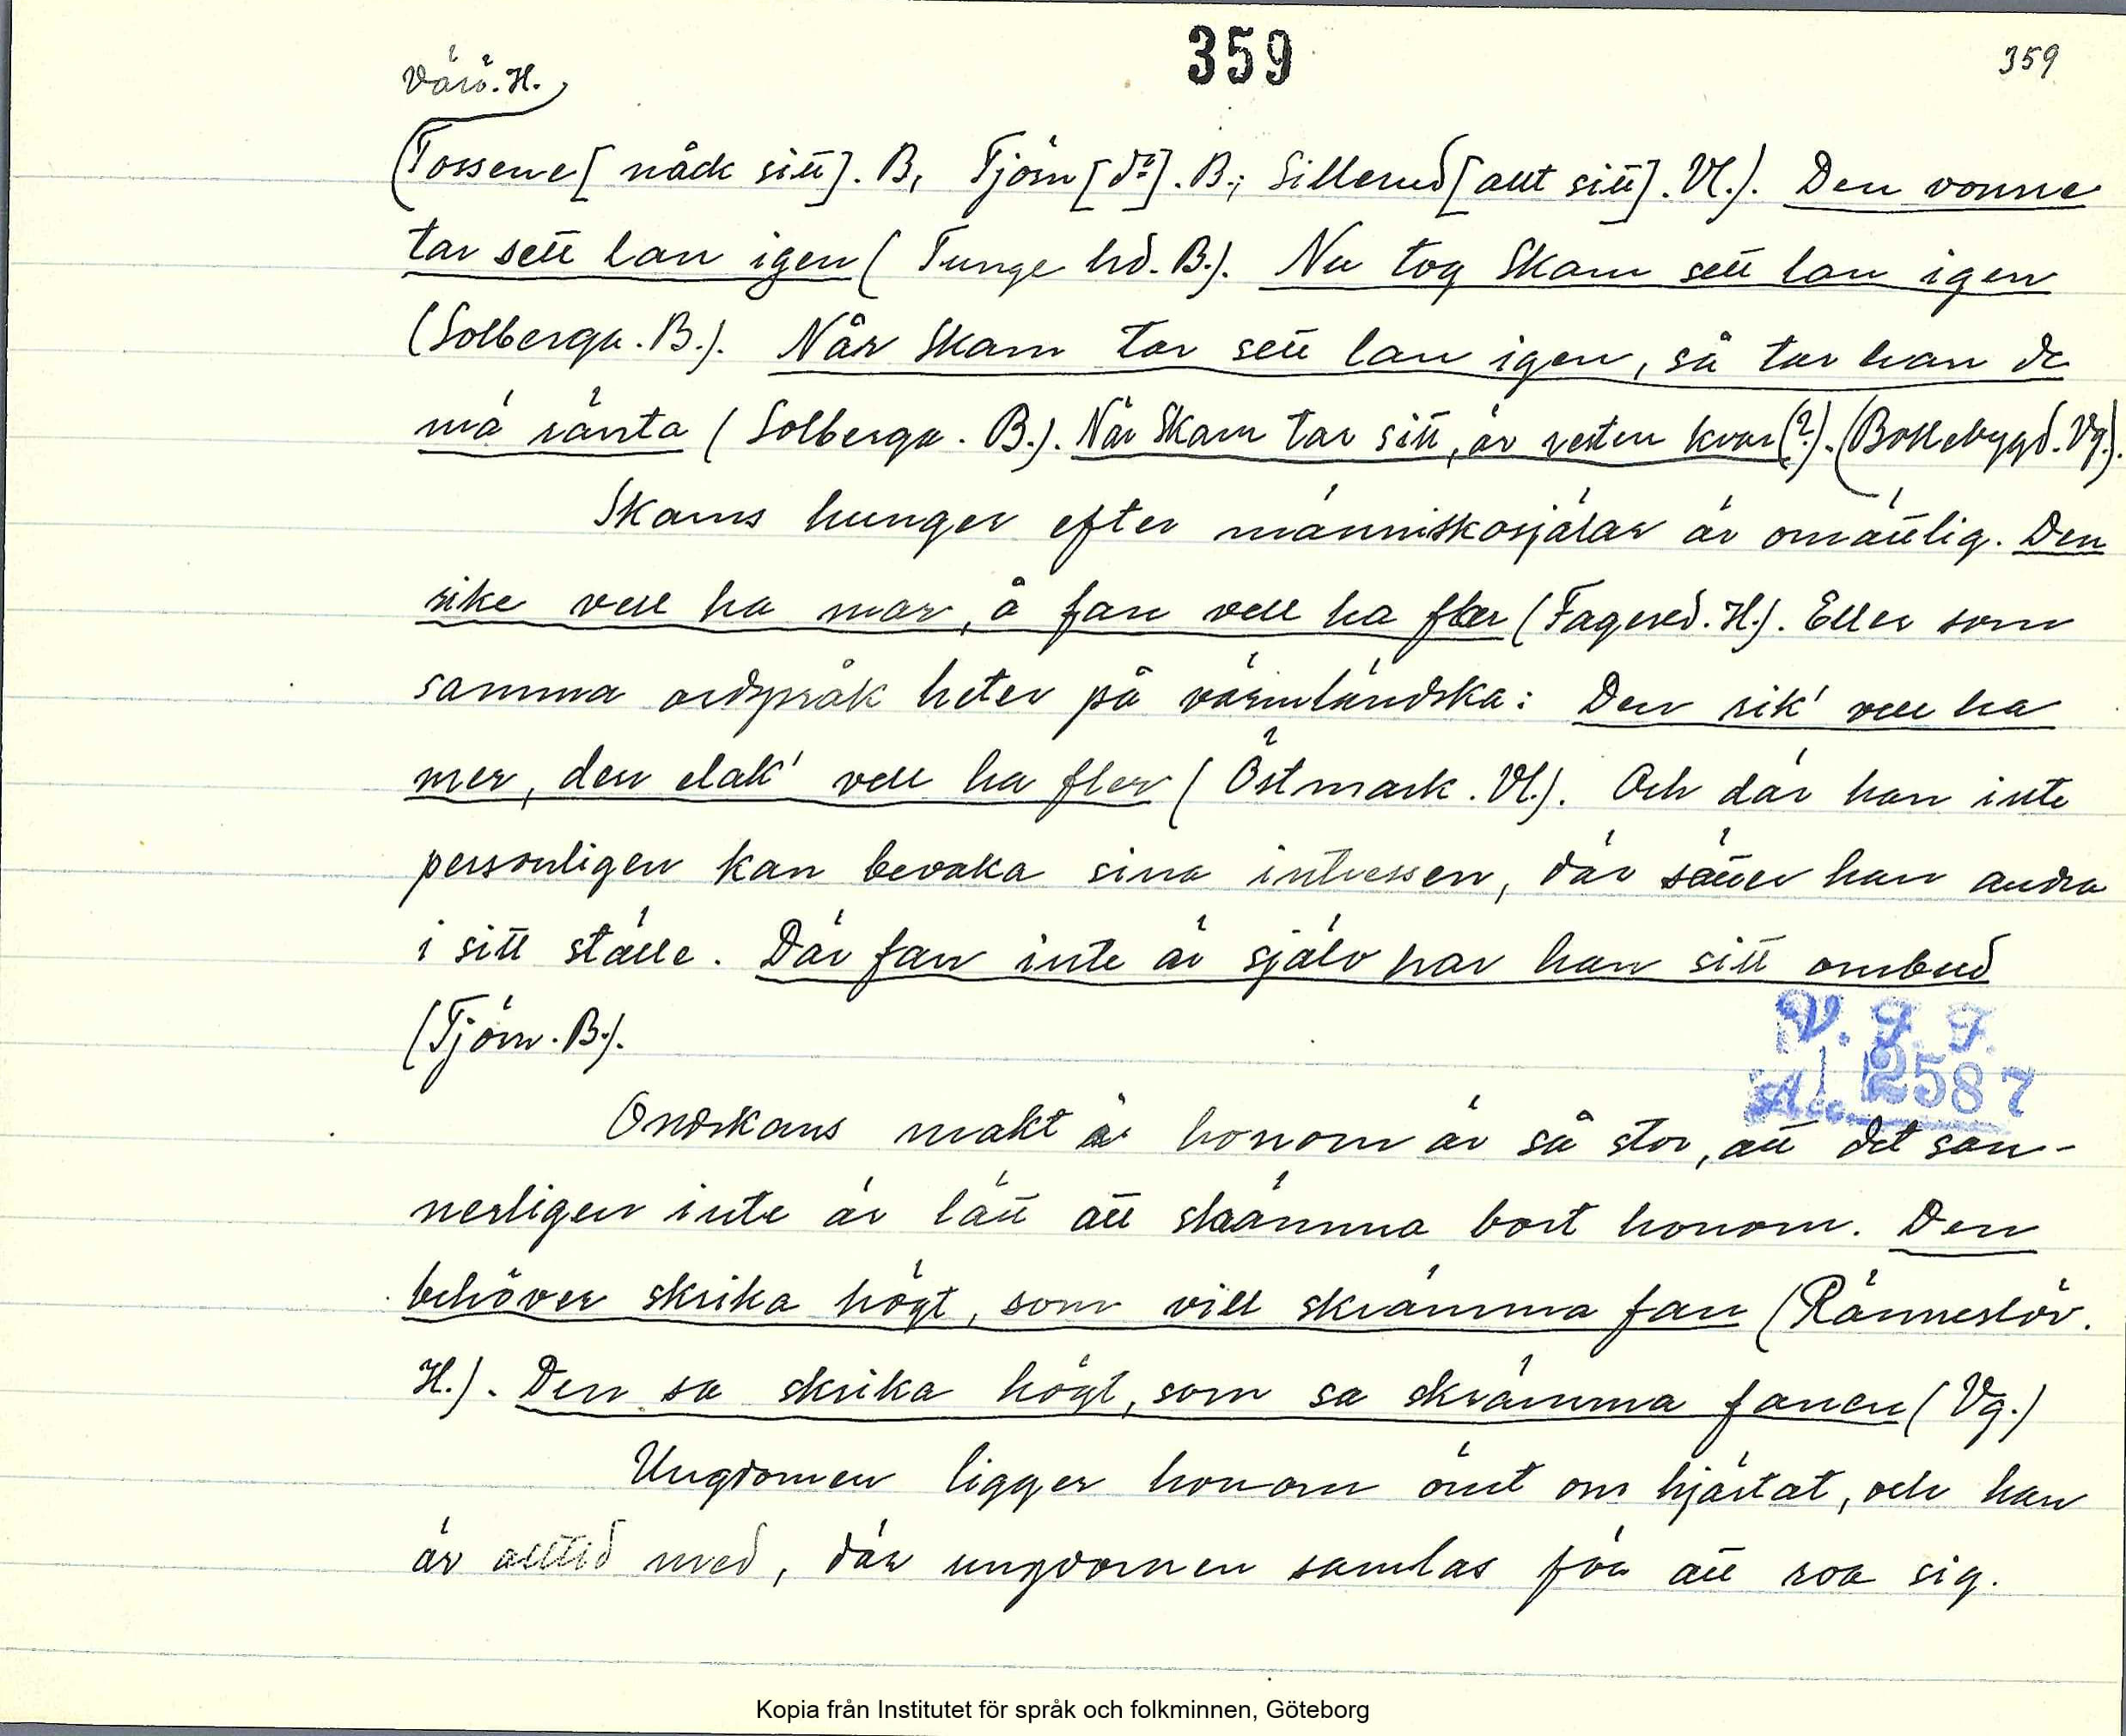 359
359
Värö. H.,
(Tossene [nåck sitt]. B, Tjörn [d:o]. B.; Sillerud [allt sitt]. Vl.). Den vonne
tar sett lan igen (Tunge hd. B.). Nu tog Skam sett lan igen
(Solberga. B.). När Skam tar sett lan igen, så tar han de
mä ränta (Solberga. B.). När Skam tar sitt, är resten kvar (?). (Bollebygd. Vg.).
Skams hunger efter människosjälar är omättlig. Den
rike vell ha mer, å fan vell ha fler (Fagered. H.). Eller som
samma ordspråk heter på värmländska: Den rik' vell ha
mer, den elak' vell ha fler (Östmark. Vl.). Och där han inte
personligen kan bevaka sina intressen, där sätter han andra
i sitt ställe. Där fan inte är själv har han sitt ombud
(Tjörn. B.).
V. F. F.
Acc. 2587
Ondskans makt i honom är så stor, att det san-
nerligen inte är lätt att skrämma bort honom. Den
behöver skrika högt, som vill skrämma fan (Ränneslöv.
H.). Den sa skrika högt, som sa skrämma fanen (Vg.)
Ungdomen ligger honom ömt om hjärtat, och han
är alltid med, där ungdomen samlas för att roa sig.
Kopia från Institutet för språk och folkminnen, Göteborg